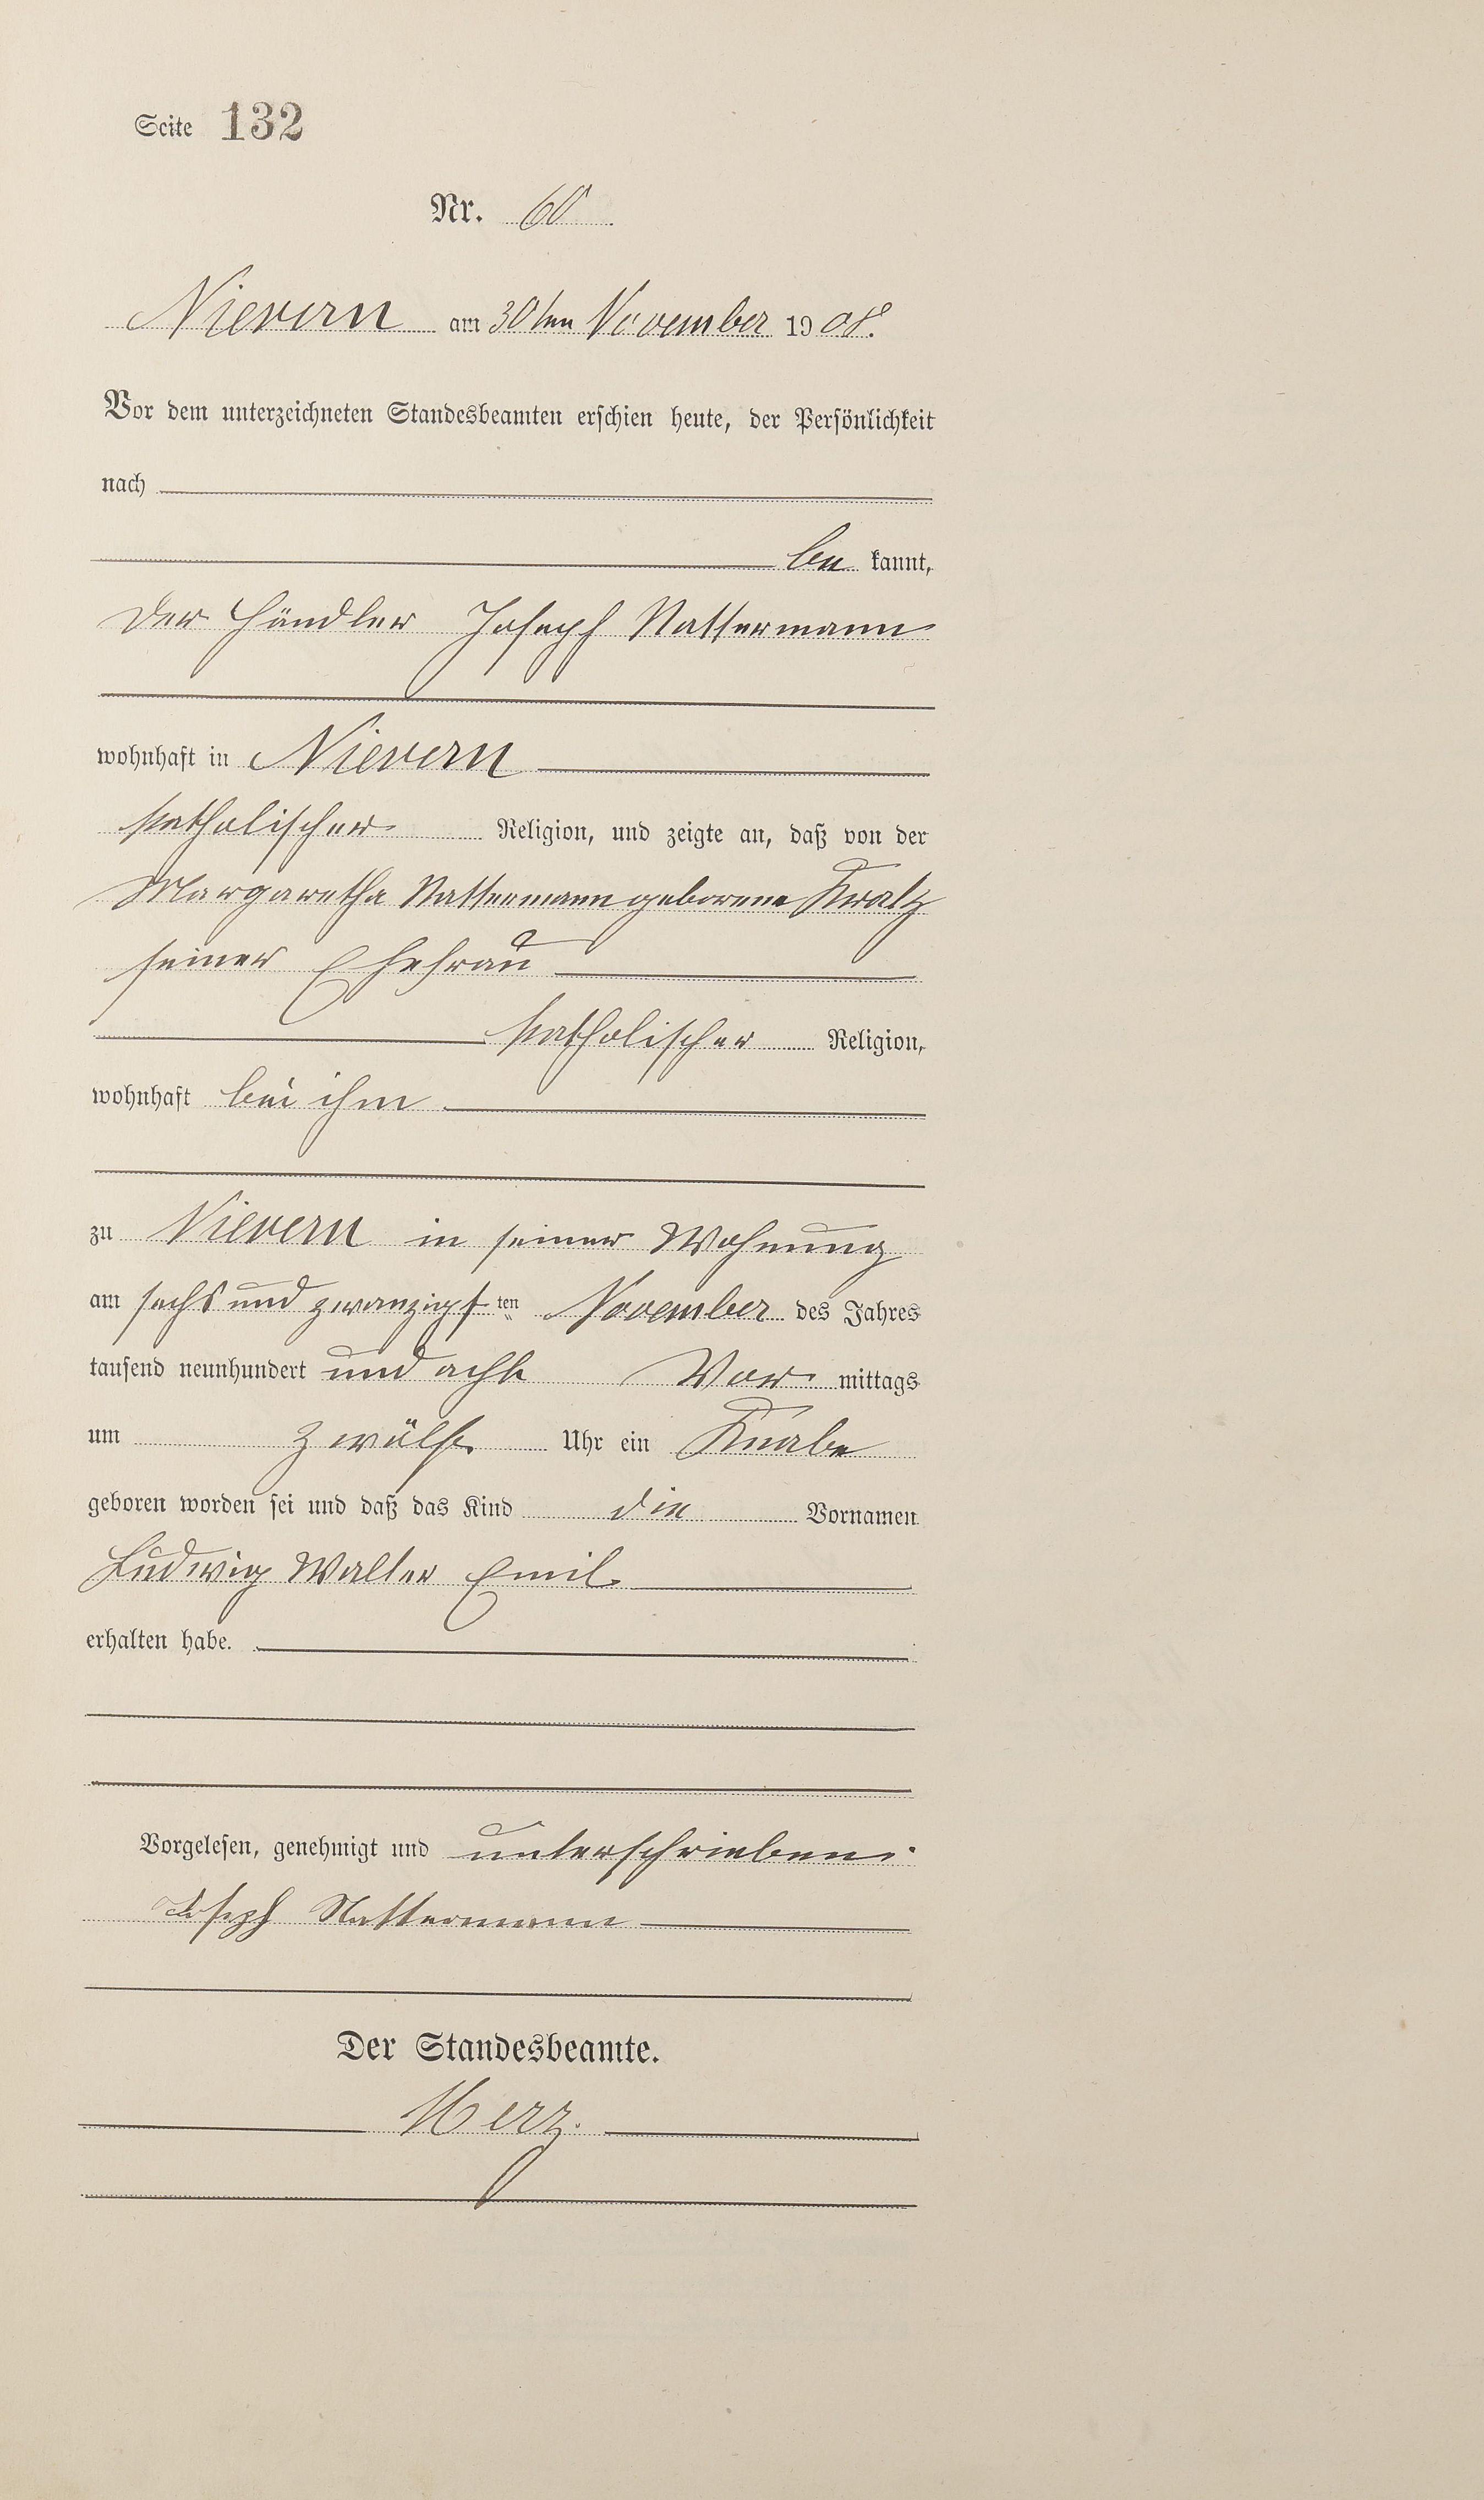 Seite 132
Nr. 60
Nievern am 30ten November 1908.
Vor dem unterzeichneten Standesbeamten erschien heute, der Persönlichkeit
nach
be kannt,
der Händler Joseph Nattermann
wohnhaft in Nievern
katholischer Religion, und zeigte an, daß von der
Margaretha Nattermann geborene Kratz
seiner Ehefrau
katholischer Religion,
wohnhaft bei ihm
zu Nievern in seiner Wohnung
am sechs und zwanzigsten November des Jahres
tausend neunhundert und acht Vor mittags
um zwölf Uhr ein Knabe
geboren worden sei und daß das Kind die Vornamen
Ludwig Walter Emil
erhalten habe.
Vorgelesen, genehmigt und unterschrieben:
Joseph Nattermann
Der Standesbeamte.
Merz.